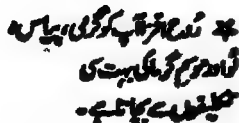 ★ روح افزا آپ کو گرمی، پیاس،
لُو اور موسمِ گرما کی بہت سی
تکلیفوں سے بچاتا ہے۔